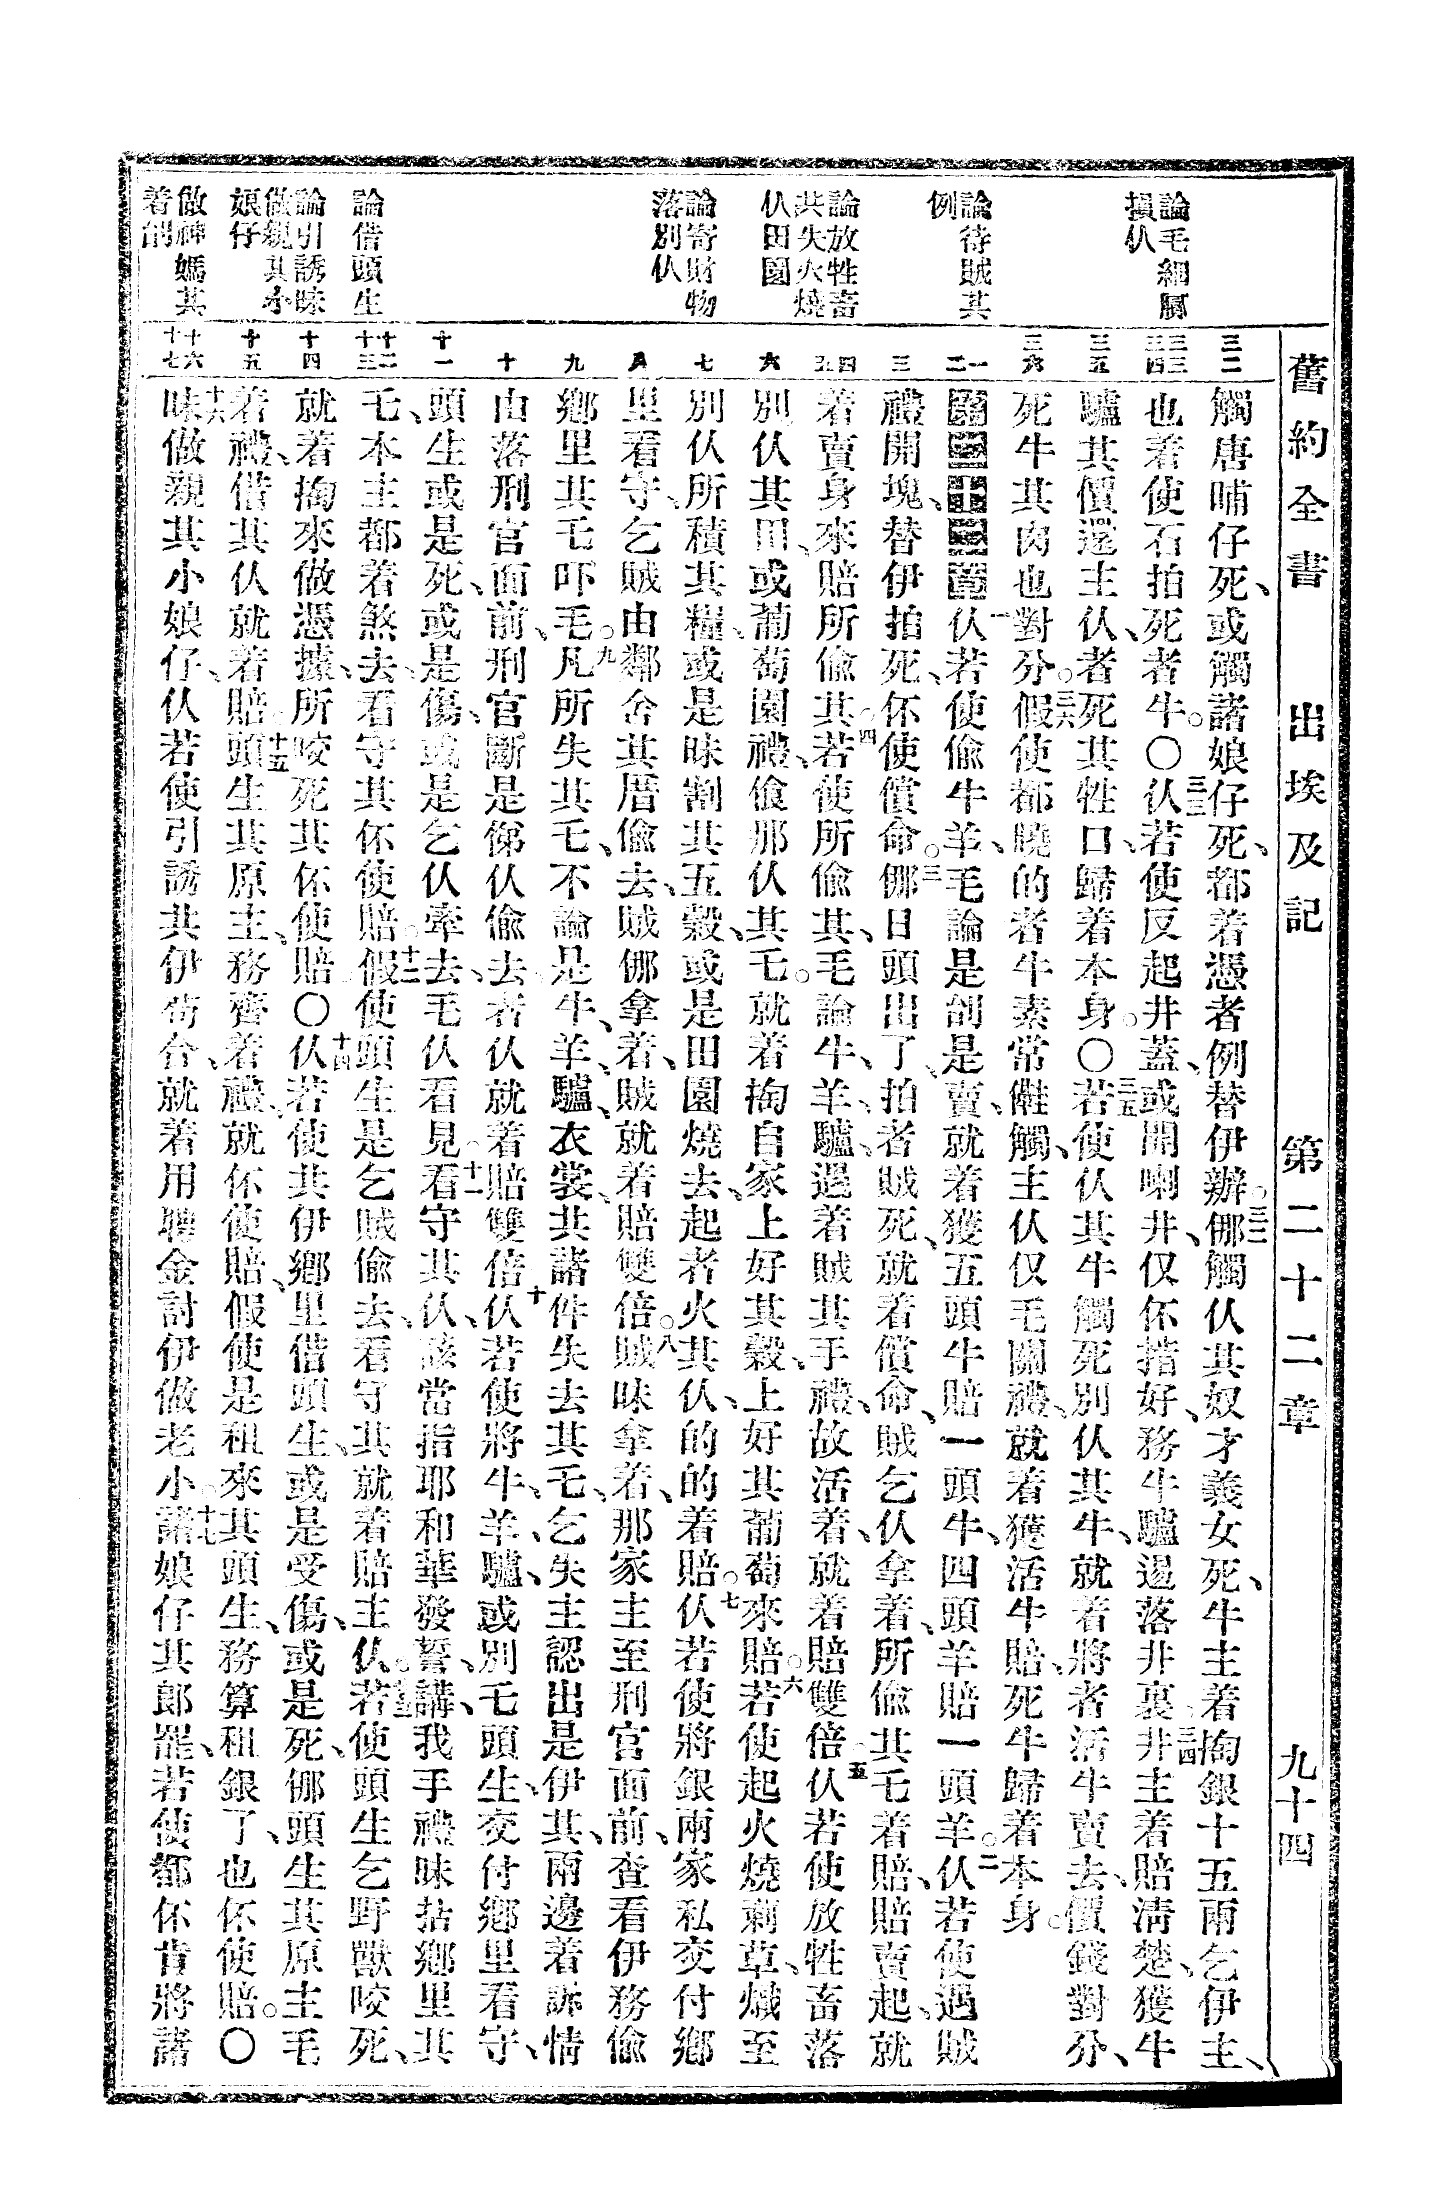 舊約全書 出埃及記 第二十二章 九十四
論毛細膩
損仈
論待賊其
例
論放牲畜
共失火燒
仈田園
論寄財物
落別仈
論借頭生
論引誘昧
做親其小
娘仔
做神媽其
着創
三二 三三 三四 三五 三六 一 二 三 四 五 六 七 八 九 十 十一 十二 十三 十四 十五 十六 十七
觸唐哺仔死、或觸諸娘仔死、都着憑者例替伊辦。三二㑚觸仈其奴才義女死、牛主着掏銀十五兩乞伊主、
也着使石拍死者牛。〇三三仈若使反起井蓋、或開喇井、仅伓揞好、務牛驢遏落井裏、三四井主着賠淸楚、獲牛
驢其價還主仈、者死其牲口歸着本身。〇三五若使仈其牛觸死別仈其牛、就着將者活牛賣去、價錢對分、
死牛其肉也對分。三六假使都曉的者牛素常儺觸、主仈仅毛關禮、就着獲活牛賠、死牛歸着本身。
第二十二章一仈若使偸牛羊、毛論是創是賣、就着獲五頭牛賠一頭牛、四頭羊賠一頭羊。二仈若使遇賊
禮開塊、替伊拍死、伓使償命。三㑚日頭出了、拍者賊死、就着償命、賊乞仈拿着、所偸其乇着賠、賠賣起、就
着賣身來賠所偸其。四若使所偸其、毛論牛、羊、驢、遏着賊其手禮、故活着、就着賠雙倍。五仈若使放牲畜落
別仈其田、或葡萄園禮、食那仈其乇。就着掏自家上好其穀、上好其葡萄來賠。六若使起火燒莿草、熾至
別仈所積其糧、或是昧割其五穀、或是田園燒去、起者火其仈、的的着賠。七仈若使將銀兩家私交付鄉
里看守、乞賊由鄰舍其厝偸去、賊㑚拿着、賊就着賠雙倍。八賊昧拿着、那家主至刑官面前、查看伊務偸
鄉里其乇吓毛。九凡所失其乇、不論是牛、羊、驢、衣裳、共諸件失去其乇、乞失主認出是伊其、兩邊着訴情
由落刑官面前、刑官斷是俤仈偸去、者仈就着賠雙倍。十仈若使將牛、羊、驢、或別乇頭生、交付鄉里看守、
頭生或是死、或是傷、或是乞仈牽去、毛仈看見。十一看守其仈、該當指耶和華發誓、講、我手禮昧拈鄉里其
乇、本主都着煞去、看守其伓使賠。十二假使頭生是乞賊偸去、看守其就着賠主仈。十三若使頭生乞野獸咬死、
就着掏來做憑據、所咬死其伓使賠。〇十四仈若使共伊鄉里借頭生、或是受傷、或是死、㑚頭生其原主毛
着禮、借其仈就着賠。十五頭生其原主、務齊着禮、就伓使賠、假使是租來其頭生、務算租銀了、也伓使賠。〇
十六昧做親其小娘仔、仈若使引誘共伊苟合、就着用聘金討伊做老小。十七諸娘仔其郎罷、若使都伓肯將諸